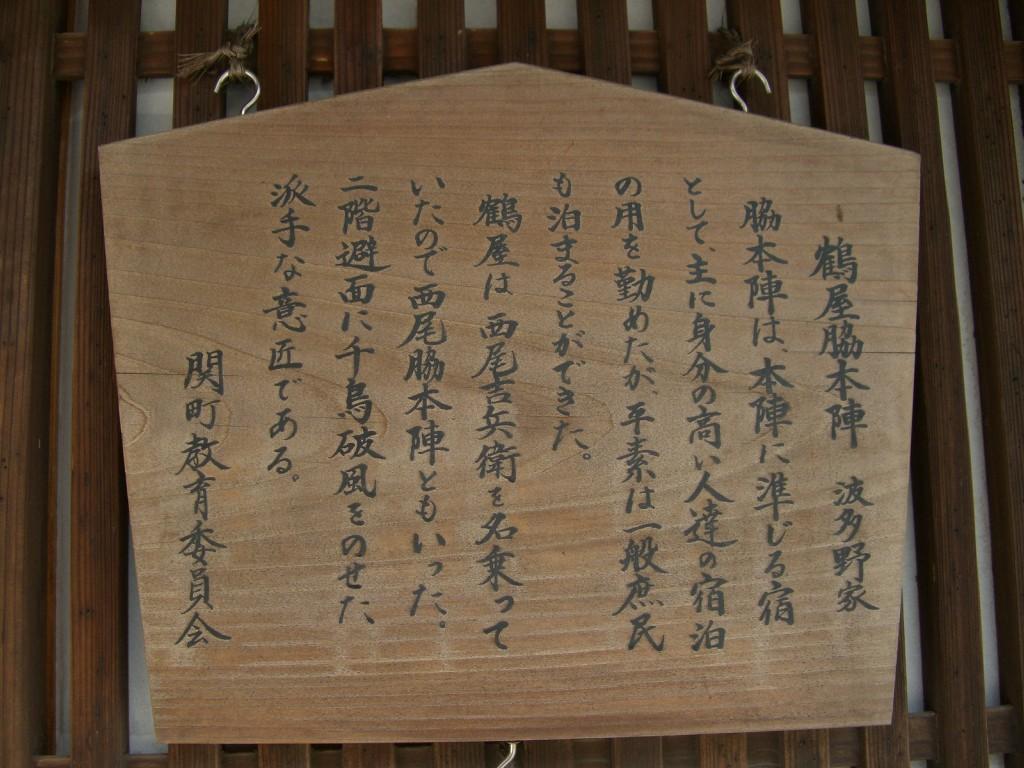 鶴屋脇本陣　波多野家
脇本陣は、本陣に準じる宿
として、主に身分の高い人達の宿泊
の用を勤めたが、平素は一般庶民
も泊まることができた。
鶴屋は西尾吉兵衛を名乗って
いたので西尾脇本陣ともいった。
二階避面に千鳥破風をのせた、
派手な意匠である。
関町教育委員会